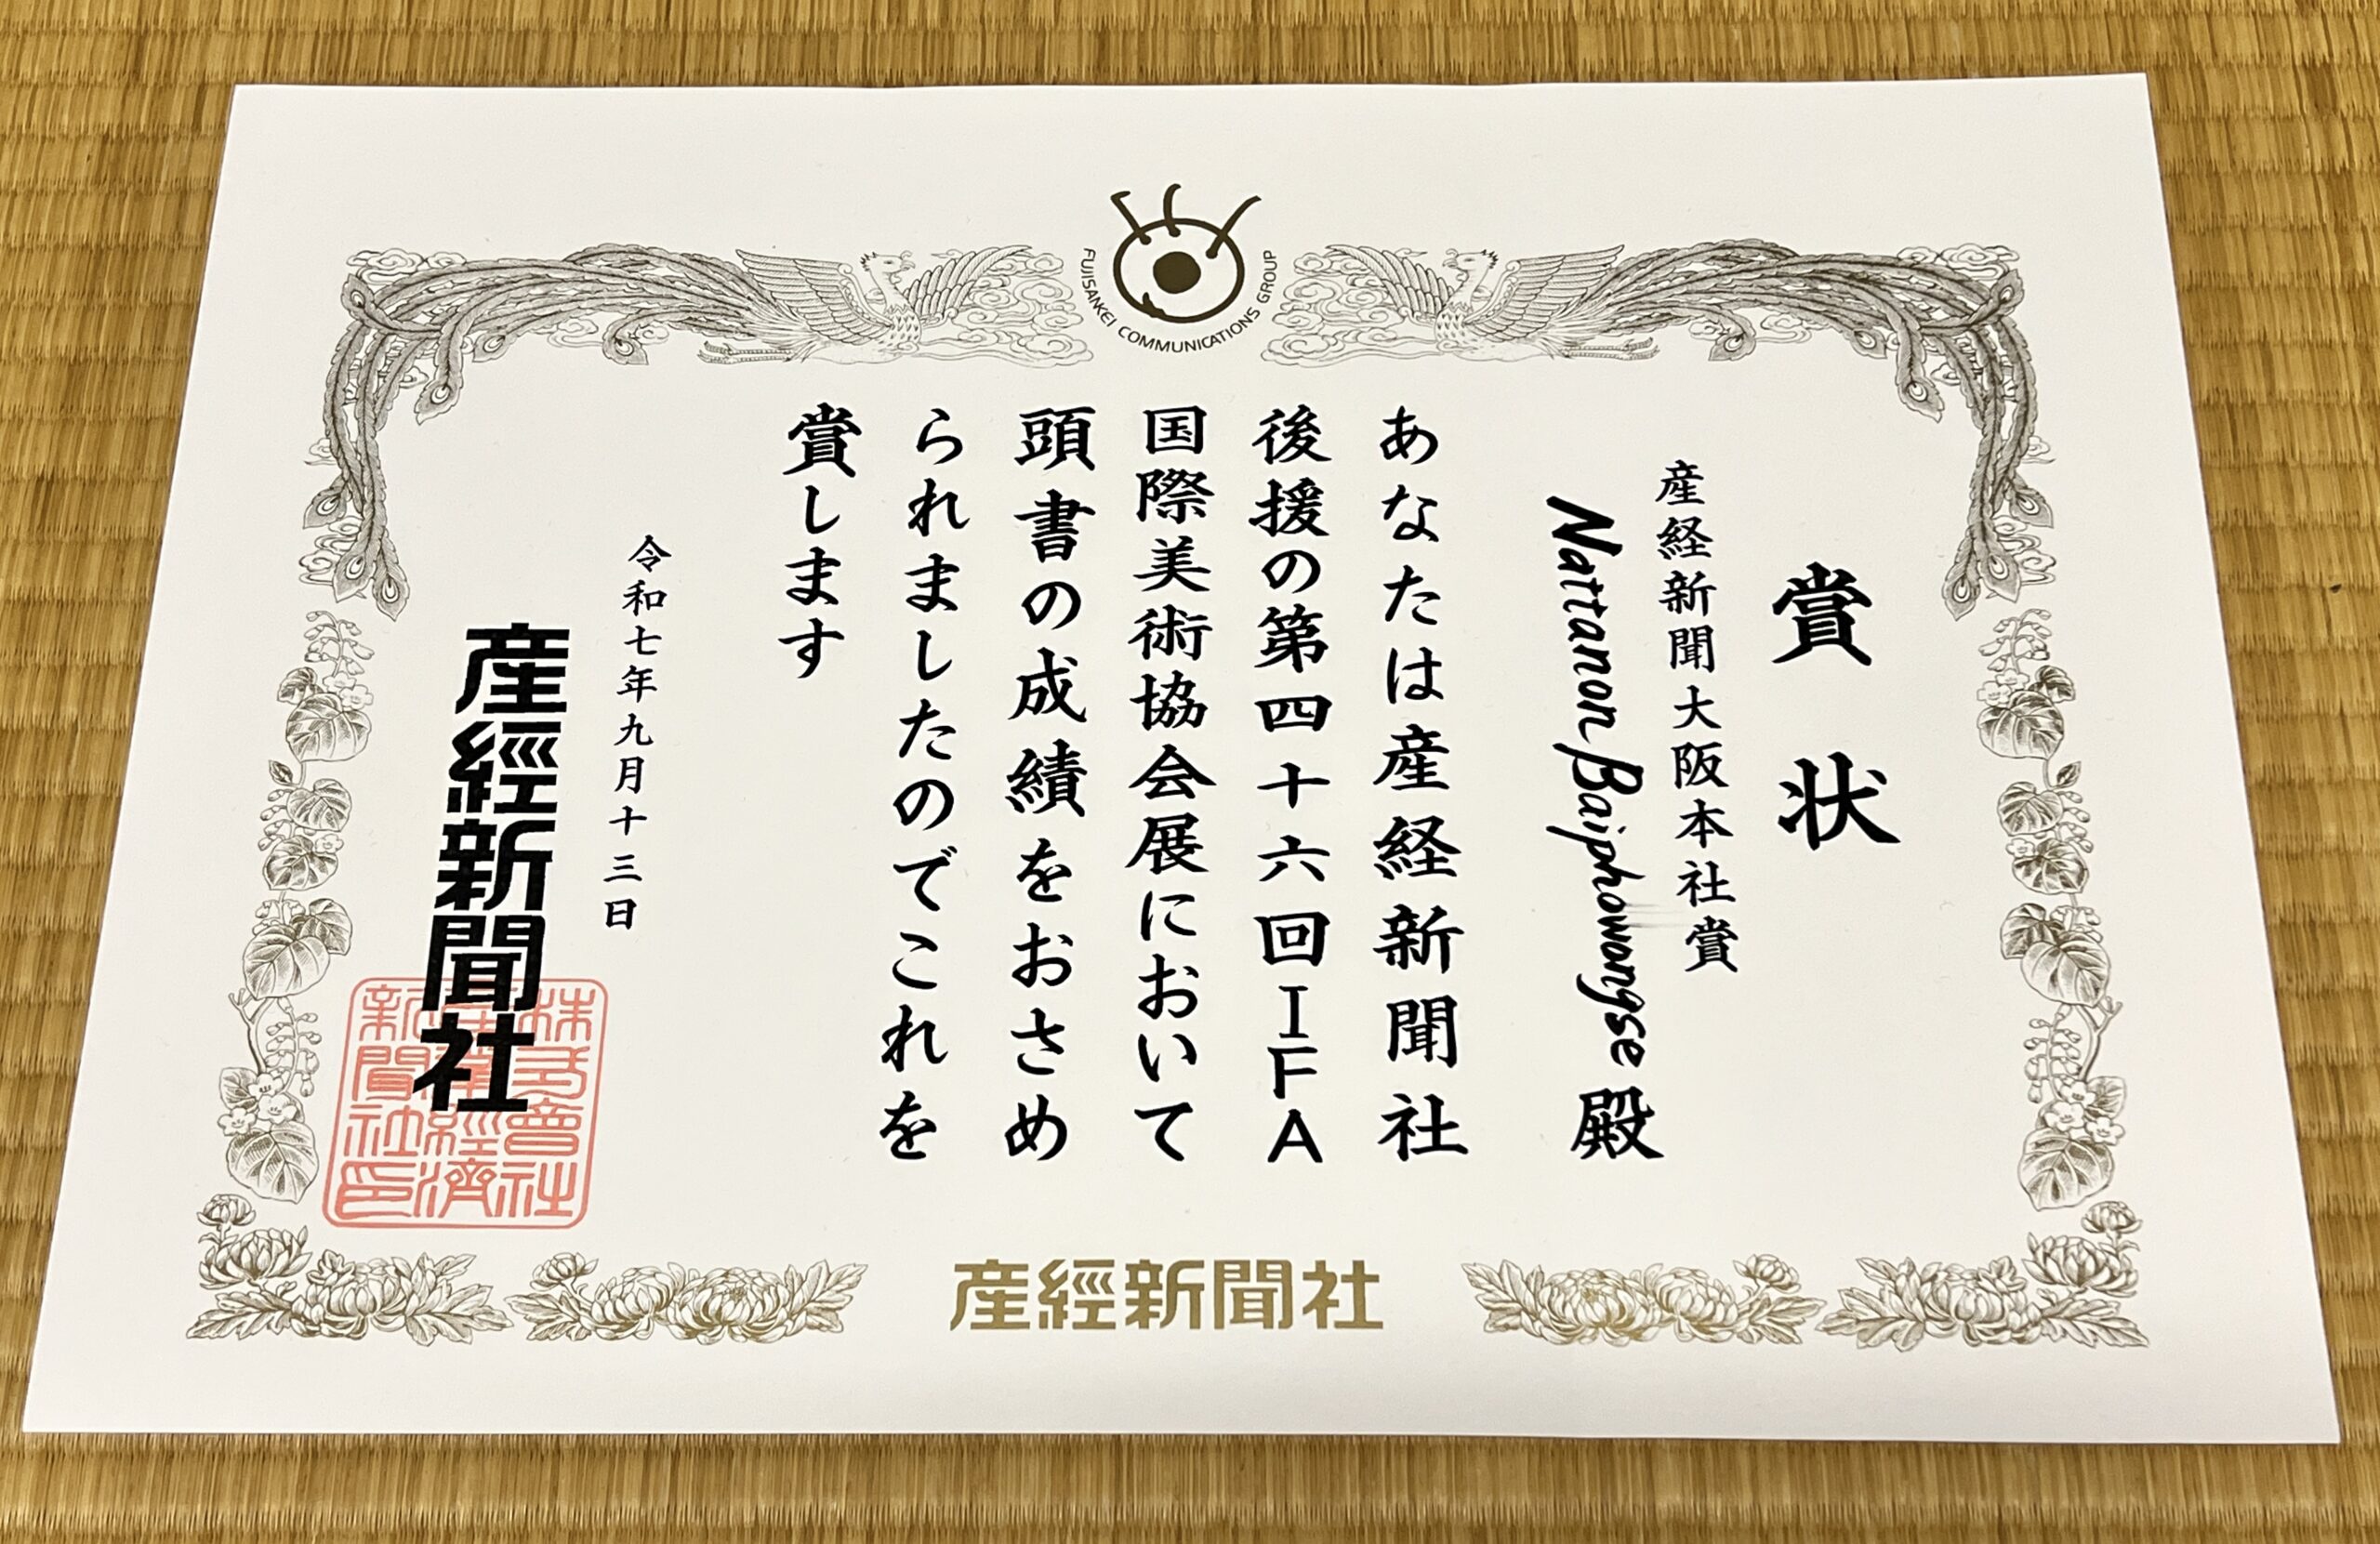 FUJISANKEI COMMUNICATIONS GROUP
賞状
産経新聞大阪本社賞
Nattanon Baiphowongse 殿
あなたは産経新聞社
後援の第四十六回IFA
国際美術協会展において
頭書の成績をおさめ
られましたのでこれを
賞します
令和七年九月十三日
産經新聞社
株式會社産業經濟新聞社印
産經新聞社